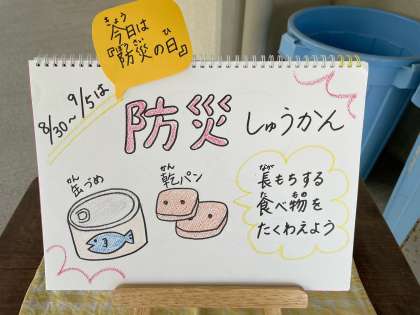 きょう
今日は
ぼうさい ひ
『防災の日』
8/30～9/5は
防災しゅうかん
かん
缶づめ
かん
乾パン
なが
長もちする
た もの
食べ物を
たくわえよう